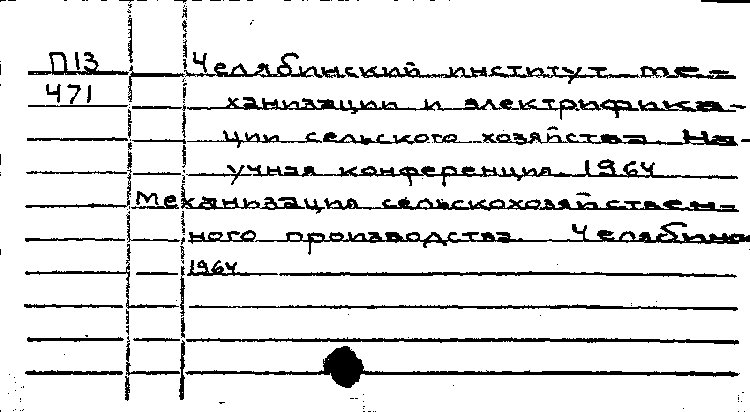 П13 Челябинский институт ме-
471 ханизации и электрифика-
ции сельского хозяйства. На-
учная конференция. 1964
Механизация сельскохозяйствен-
ного производства. Челябинс
1964.